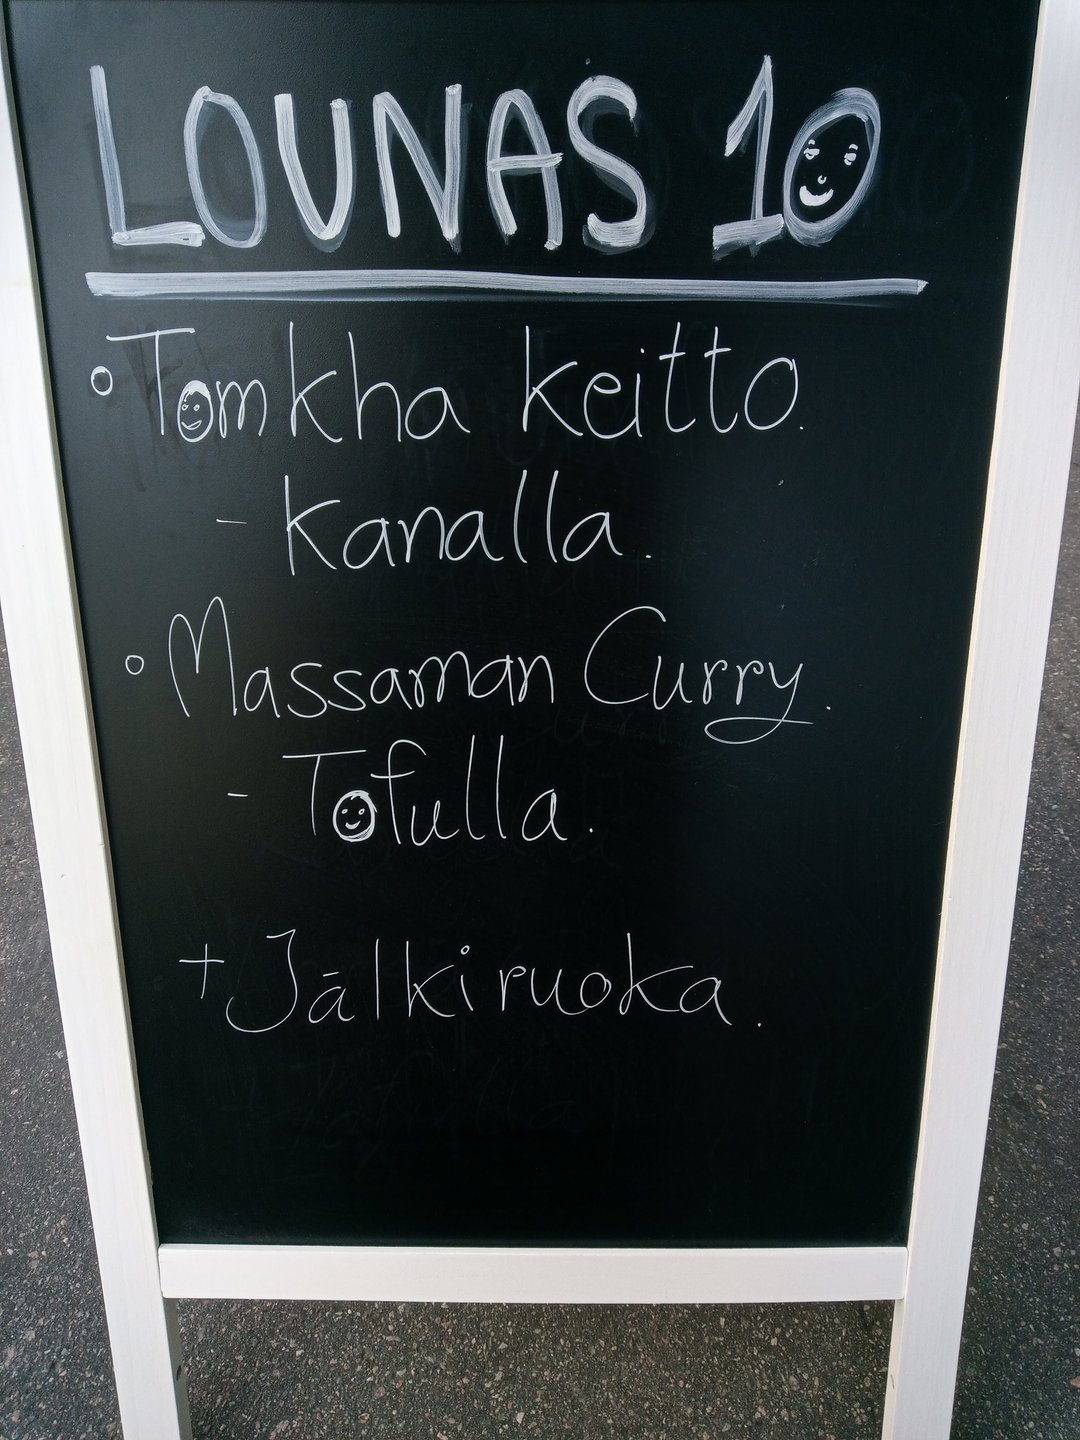 LOUNAS 10
• Tomkha keitto.
- Kanalla.
• Massaman Curry.
- Tofulla.
+ Jälkiruoka.